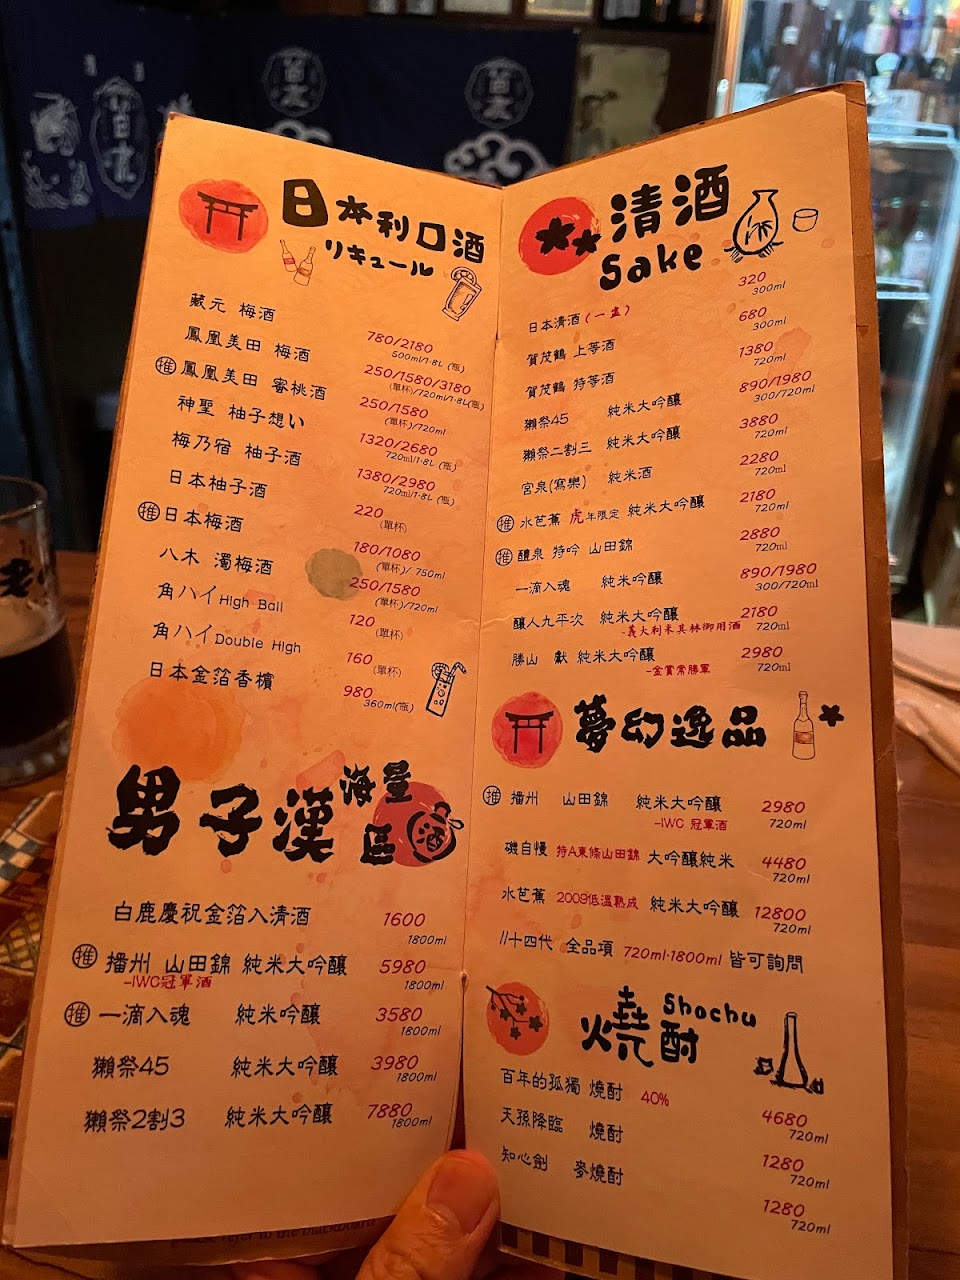 日本利口酒
リキュール
藏元 梅酒 780/2180
500ml/1.8L (瓶)
鳳凰美田 梅酒 250/1580/3180
(單杯)/720ml/1.8L(瓶)
推 鳳凰美田 蜜桃酒 250/1580
(單杯)/720ml
神聖 柚子想い 1320/2680
720ml/1.8L (瓶)
梅乃宿 柚子酒 1380/2980
720ml/1.8L (瓶)
日本柚子酒 220
(單杯)
推 日本梅酒 180/1080
(單杯)/ 750ml
八木 濁梅酒 250/1580
(單杯)/720ml
角ハイ High Ball 120
(單杯)
角ハイ Double High 160
(單杯)
日本金箔香檳 980
360ml(瓶)
男子漢 海量區
酒
白鹿慶祝金箔入清酒 1600
1800ml
推 播州 山田錦 純米大吟釀 5980
-IWC冠軍酒 1800ml
推 一滴入魂 純米吟釀 3580
1800ml
獺祭45 純米大吟釀 3980
1800ml
獺祭2割3 純米大吟釀 7880
1800ml
清酒
Sake
日本清酒(一壺) 320
300ml
賀茂鶴 上等酒 680
300ml
賀茂鶴 特等酒 1380
720ml
獺祭45 純米大吟釀 890/1980
300/720ml
獺祭二割三 純米大吟釀 3880
720ml
宮泉(寫樂) 純米酒 2280
720ml
推 水芭蕉 虎年限定 純米大吟釀 2180
720ml
推 醴泉 特吟 山田錦 2880
720ml
一滴入魂 純米吟釀 890/1980
300/720ml
釀人九平次 純米大吟釀 2180
-義大利米其林御用酒 720ml
勝山 獻 純米大吟釀 2980
-金賞常勝軍 720ml
夢幻逸品
推 播州 山田錦 純米大吟釀 2980
-IWC 冠軍酒 720ml
磯自慢 特A東條山田錦 大吟釀純米 4480
720ml
水芭蕉 2009低溫熟成 純米大吟釀 12800
720ml
十四代 全品項 720ml·1800ml 皆可詢問
燒酎
Shochu
百年的孤獨 燒酎 40% 4680
720ml
天孫降臨 燒酎 1280
720ml
知心劍 麥燒酎 1280
720ml